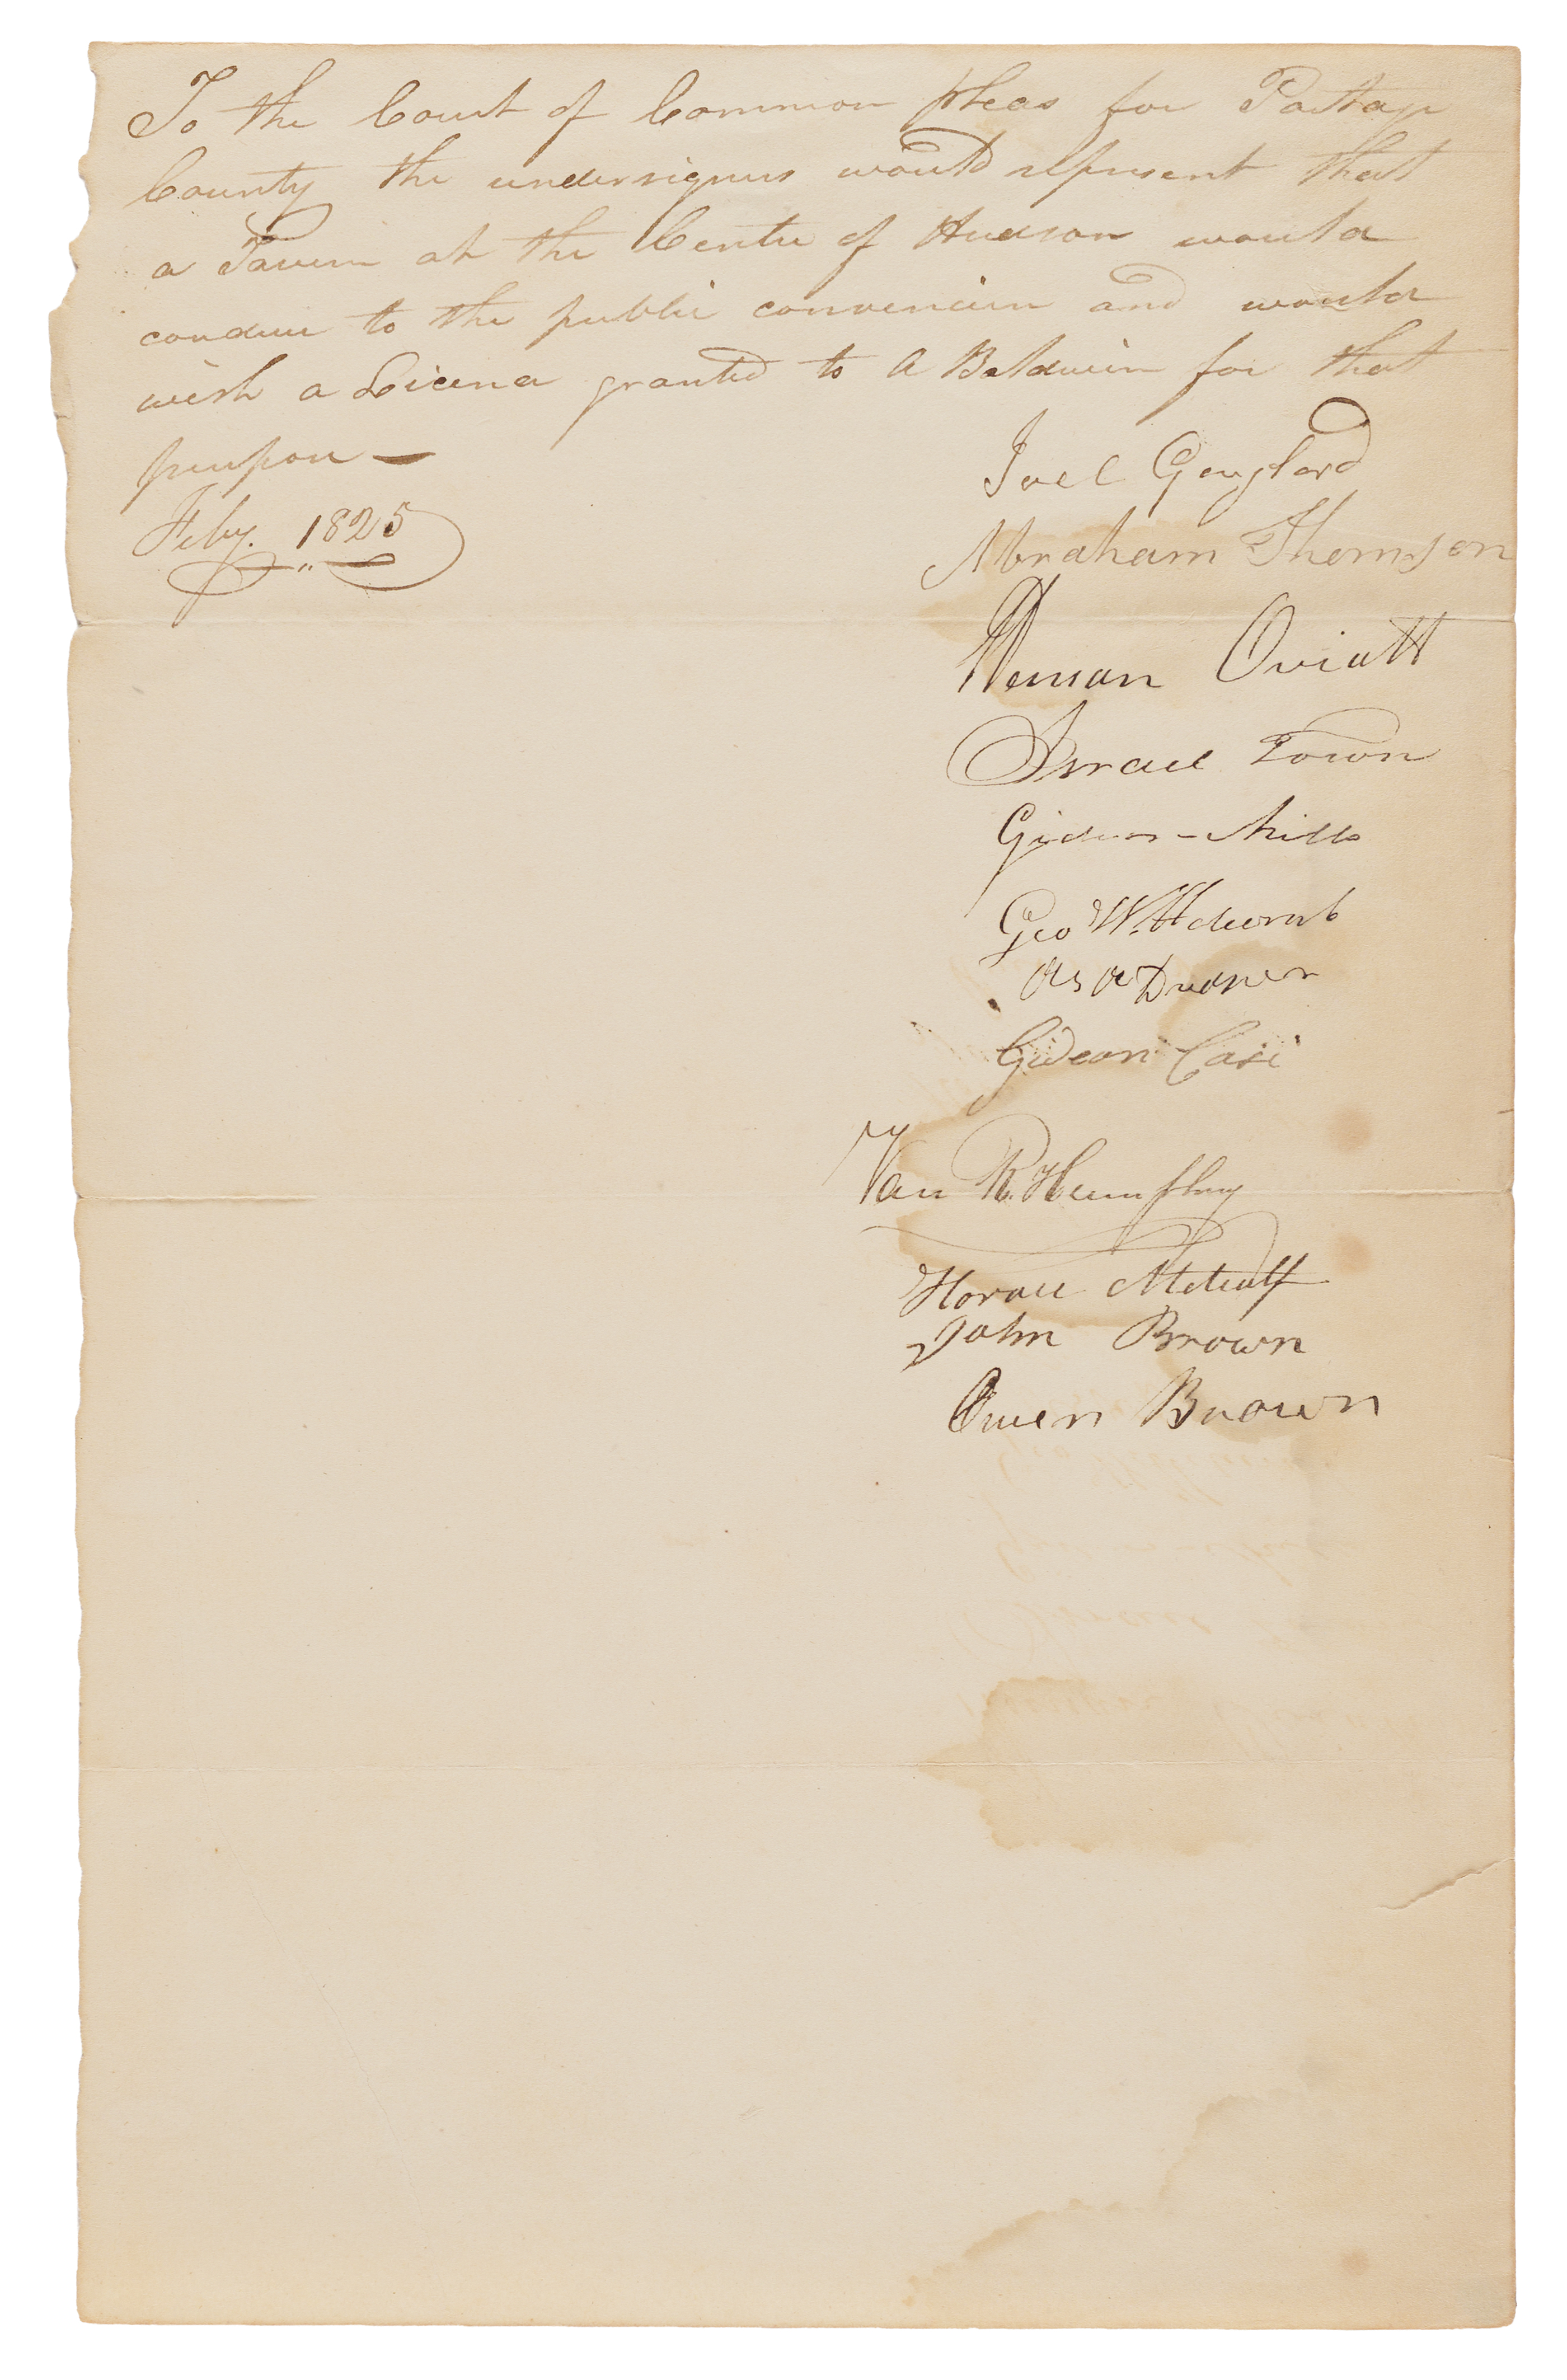 To the Court of Common pleas for Portage
County the undersigners would represent that
a Tavern at the Centre of Hudson would
conduce to the public convenience and would
wish a Licence granted to A Baldwin for that
purpose —
Feby. 1825
Joel Gaylord
Abraham Thomson
Heman Oviatt
Israel Town
Gideon - Mills
Geo W. Holcomb
Gideon Case
Van R. Humphrey
Horace Metcalf
John Brown
Owen Brown